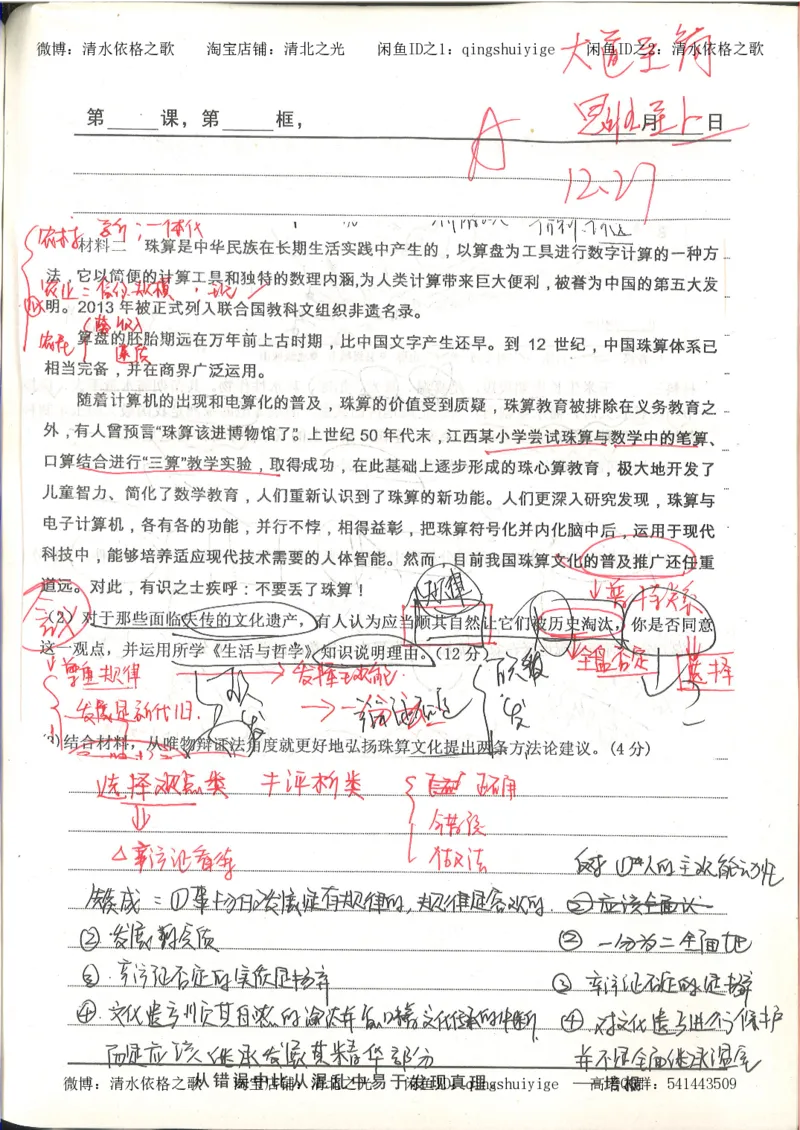 微博：清水依格之歌 淘宝店铺：清北之光 闲鱼ID之1：qingshuiyige 闲鱼ID之2：清水依格之歌
大道至简
第 课，第 框， 月 日
思维至上
A
12.27
材料二 珠算是中华民族在长期生活实践中产生的，以算盘为工具进行数字计算的一种方
法，它以简便的计算工具和独特的数理内涵,为人类计算带来巨大便利，被誉为中国的第五大发
明。2013年被正式列入联合国教科文组织非遗名录。
算盘的胚胎期远在万年前上古时期，比中国文字产生还早。到 12 世纪，中国珠算体系已
相当完备，并在商界广泛运用。
随着计算机的出现和电算化的普及，珠算的价值受到质疑，珠算教育被排除在义务教育之
外，有人曾预言“珠算该进博物馆了”。上世纪 50 年代末，江西某小学尝试珠算与数学中的笔算、
口算结合进行“三算”教学实验，取得成功，在此基础上逐步形成的珠心算教育，极大地开发了
儿童智力、简化了数学教育，人们重新认识到了珠算的新功能。人们更深入研究发现，珠算与
电子计算机，各有各的功能，并行不悖，相得益彰，把珠算符号化并内化脑中后，运用于现代
科技中，能够培养适应现代技术需要的人体智能。然而，目前我国珠算文化的普及推广还任重
道远。对此，有识之士疾呼：不要丢了珠算！
规律
（2）对于那些面临失传的文化遗产，有人认为应当顺其自然让它们被历史淘汰，你是否同意
这一观点，并运用所学《生活与哲学》知识说明理由。（12 分）
全盘否定 选择
尊重规律
发展是新代旧.
(3)结合材料，从唯物辩证法角度就更好地弘扬珠算文化提出两条方法论建议。（4 分）
选择观点类 评析类
正确
错误
做法
△辩证否定
反对 ①人的主观能动性
赞成：①事物的发展是有规律的，规律是客观的. ②应该全面认
②发展的实质 ②一分为二全面地
③辩证否定的实质是扬弃 ③辩证否定的是扬弃
④文化遗产顺其自然的淘汰并 ④对文化遗产进行保护
而是应该继承发展其精华部分 并不是全面继承
从错误中比从混乱中易于发现真理。 ——培根
微博：清水依格之歌 淘宝店铺：清北之光 闲鱼ID：qingshuiyige 高 群：541443509